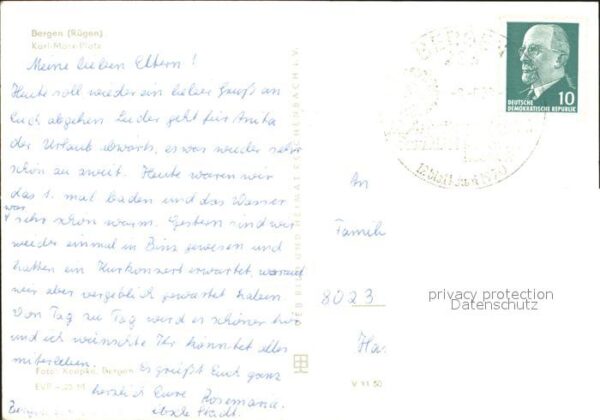 Bergen (Rügen)
Karl-Marx-Platz
Meine lieben Eltern!
Heute soll wieder ein lieber Gruß an
Euch abgehen. Leider geht für Anita
der Urlaub abwärts, es war wieder sehr
schön zu zweit. Heute waren wir
das 1. mal baden und das Wasser
war sehr schön warm. Gestern sind wir
wieder einmal in Binz gewesen und
hatten ein Kurkonzert erwartet, worauf
wir aber vergeblich gewartet haben.
Von Tag zu Tag wird es schöner hier
und ich wünschte Ihr könntet alles
miterleben. Es grüßt Euch ganz
herzlich Eure Rosemarie.
Foto: Knopke, Bergen
EVP
VEB BILD UND HEIMAT REICHENBACH i. V.
V 11 50
BERGEN
DEUTSCHE
DEMOKRATISCHE REPUBLIK
10
An
Familie
8023
privacy protection
Datenschutz